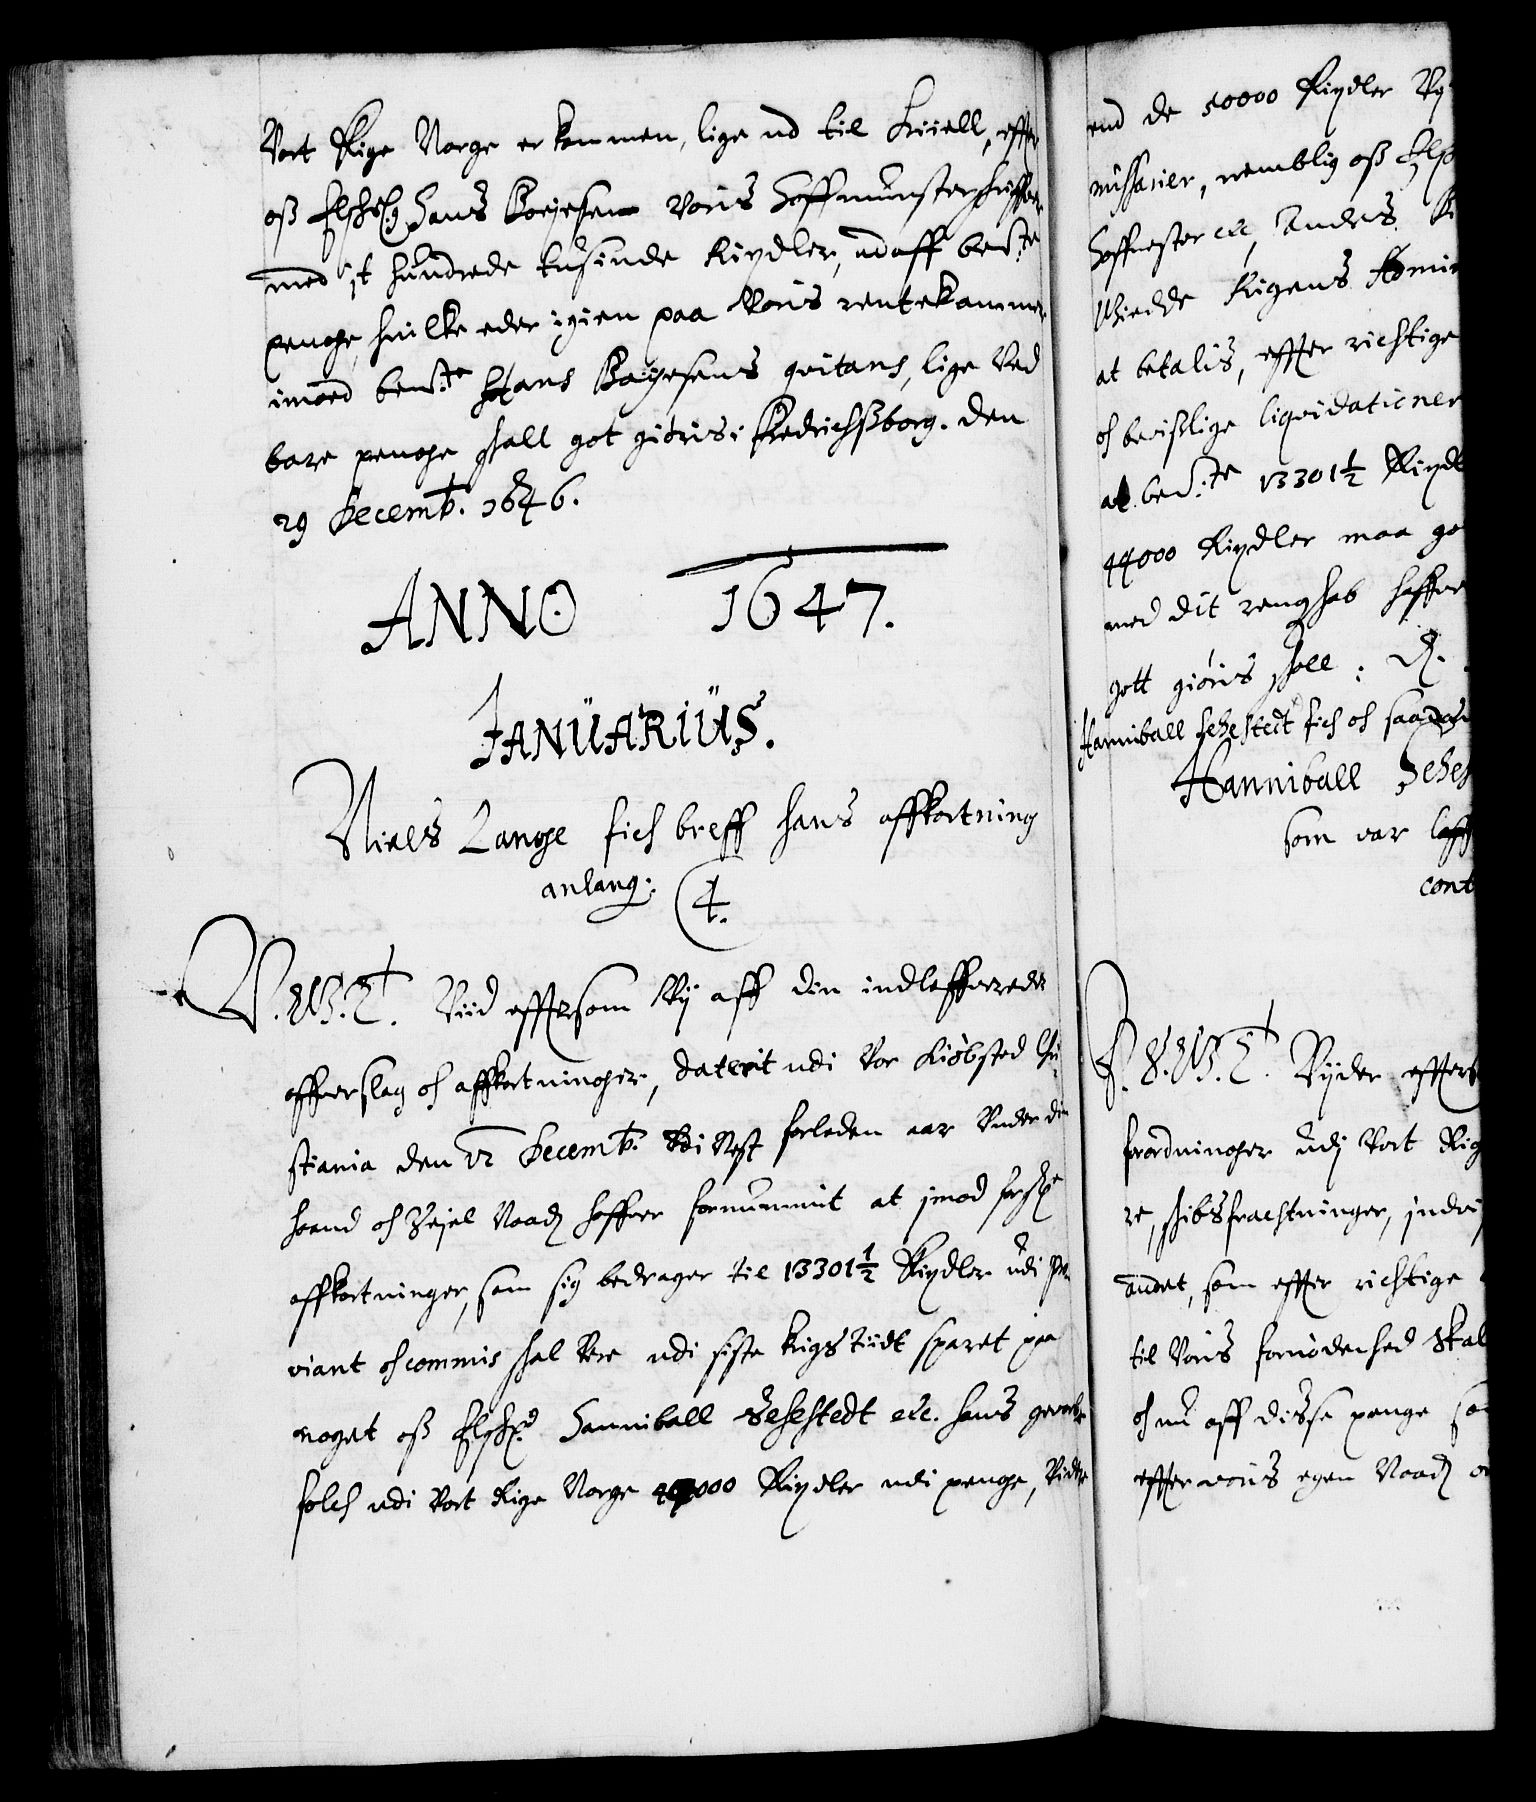 Vort Rige Norge er kommen, lige ud til Kiiell, effter
oß Elskel: Hans Boyesen Voris Hoffmunsterskriffuer
med it hundrede tusinde Rixdler, udaff bem:te
penge, huilke eder igien paa Voris rentekammer
imoed bem:te Hans Boyesens qvitans, lige Ved
bare penge skall got giöris: Fredrichsborg. den
29 Decemb: 1646.
ANNO 1647.
JANUARIUS.
Niels Lange fick breff hans affkortning
anlang: 4.
V. G. T. Viid effter som Wij aff din indleffuerede
offuerslag och affkortninger, daterit udi Vor Kiöbsted Chri
stiania den 12 Decemb. udi Nest forleden aar Under din
haand och Zejel Naad: haffuer fornummit at imod
affkortninger, som sig bedrager til 13301½ Rixdler udi pro
viant och commis skal Vere udi siste krigs tiidt sparet paa
noget oß Elskel: Hanniball Sehestedt etc. hans geworben
folck udi Vort Rige Norge 44000 Rixdler udi penge, Vidre
end de 50000 Rixdler
missarier, nemblig oß Elsk
Hoffmester etc, Anders
Rigens Admir
at betalis, effter richtige
och bevißlige liqvidationer
at bem:te 13301½ Rixdl
44000 Rixdler maa go
med dit rengskab haffuer
gott giöris skall:
Hanniball Sehestedt fick och saadan
Hanniball Sehes
som var
cont
V. G. T. Vijder effters
forordninger udj Vort Rig
re, skibsfrachtninger,
andet, som effter richtige
til Voris fornödenhed skal
och nu aff disse penge
effter voris egen Naad: